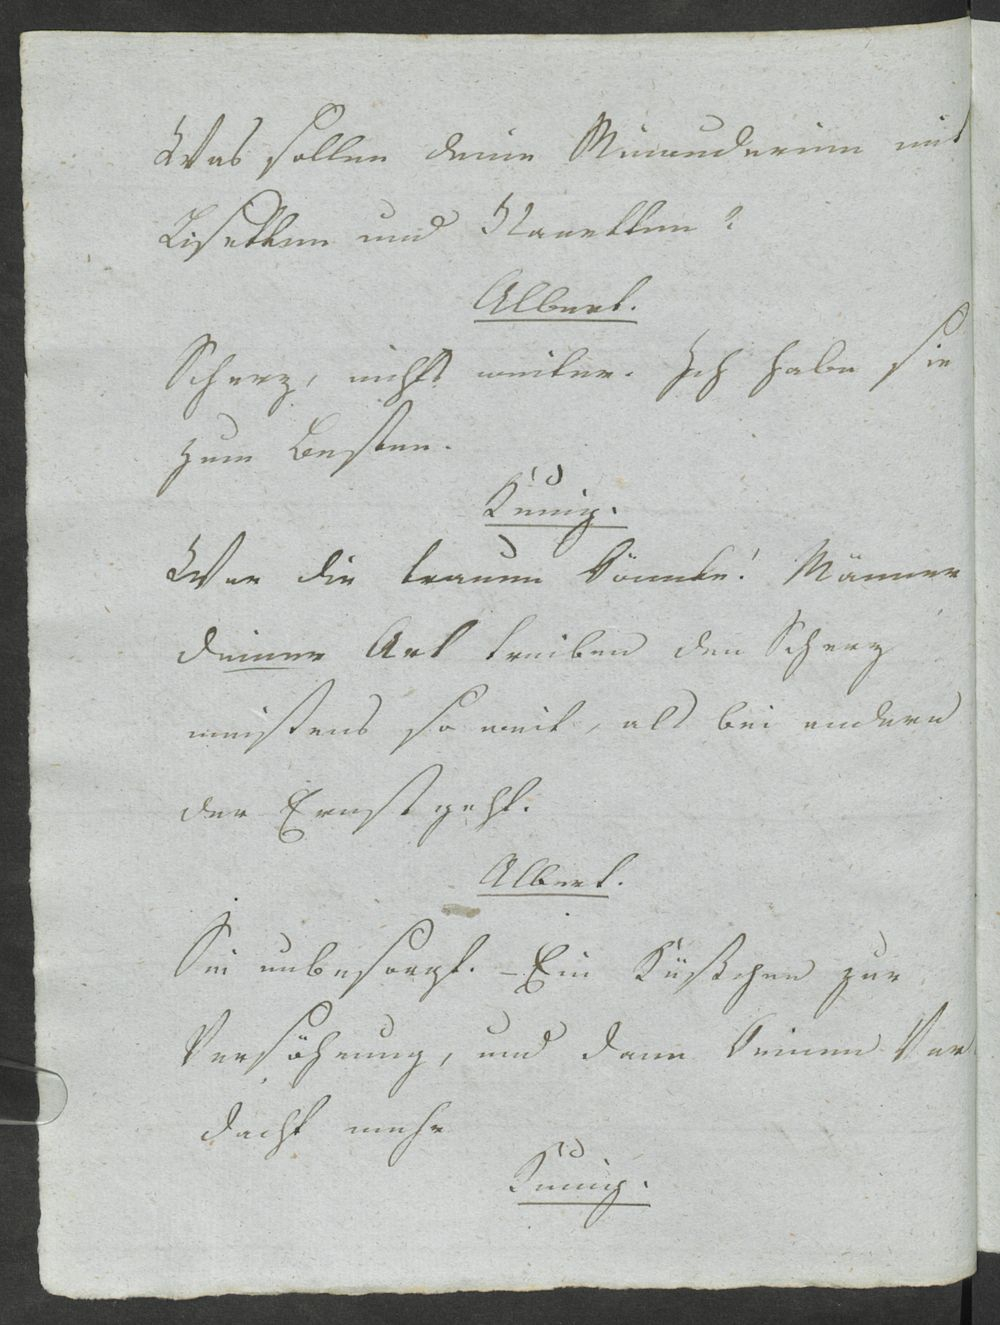 Was sollen deine Minauderien mit
Lisetten und Nanetten?
Albert.
Scherz, nichts weiter. Ich habe sie
zum Besten.
Kunig.
Wer dir trauen könnte! Männer
deiner Art treiben den Scherz
meistens so weit, als bei andern
der Ernst geht.
Albert.
Sei unbesorgt. – Ein Küßchen zur
Versöhnung, und dann keinen Ver
dacht mehr
Kunig.